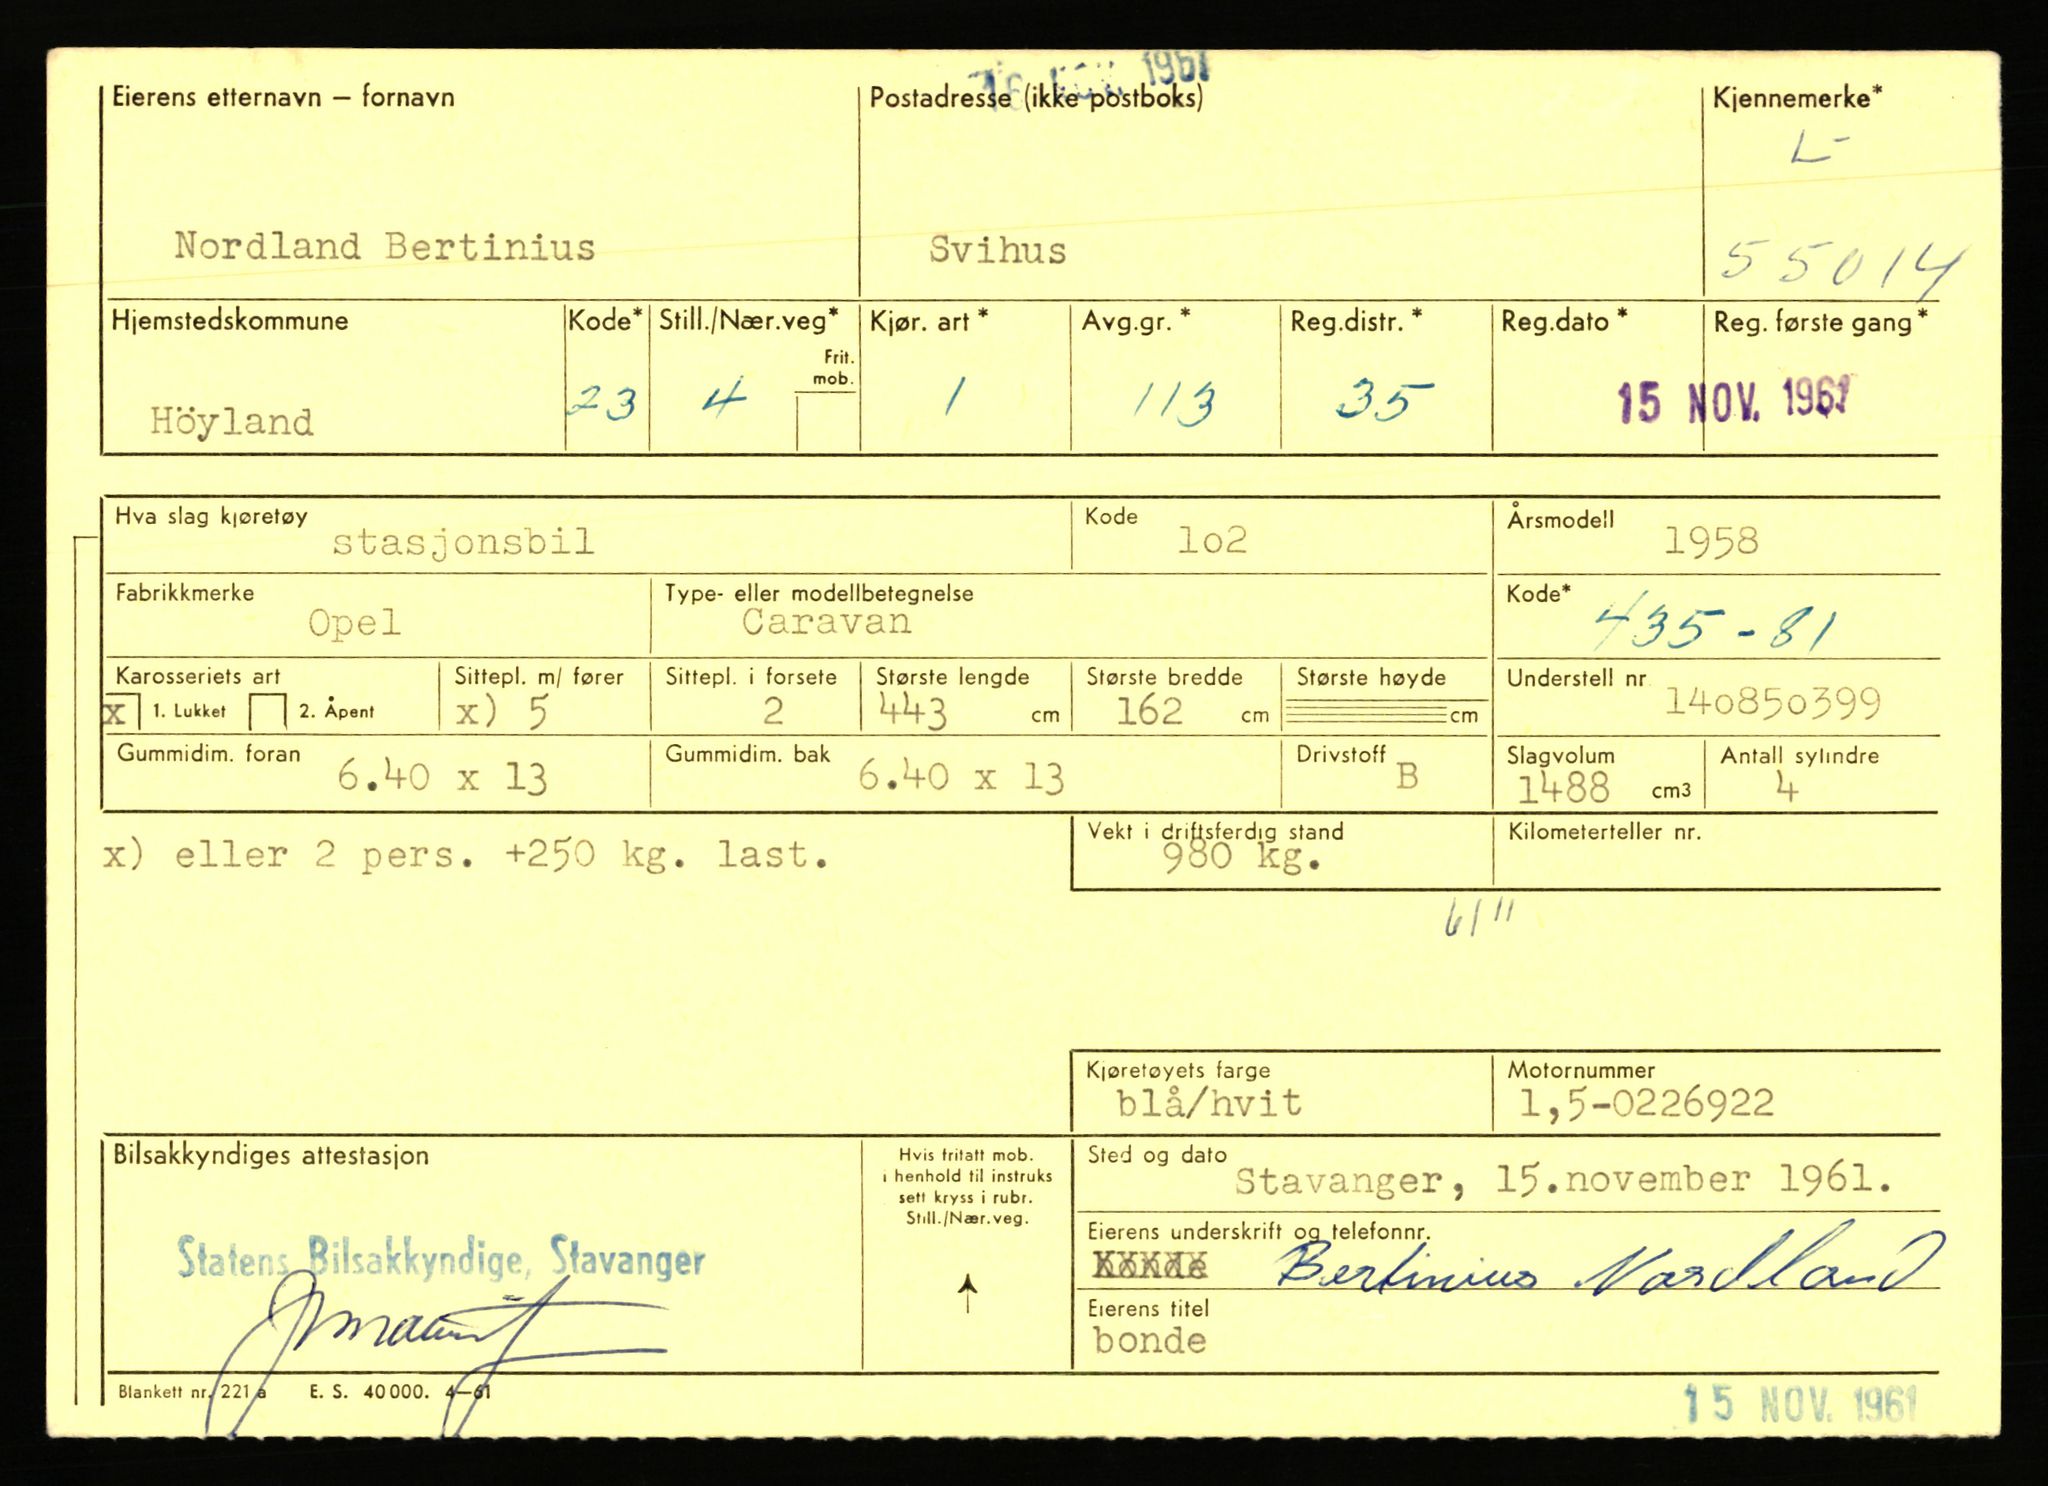 1961
Eierens etternavn – fornavn Postadresse (ikke postboks) Kjennemerke*
L-
Nordland Bertinius Svihus 55014
Hjemstedskommune Kode* Still./Nær.veg* Kjør. art * Avg.gr. * Reg.distr. * Reg.dato * Reg. første gang *
Frit.
mob.
Höyland 23 4 1 113 35 15 NOV. 1961
Hva slag kjøretøy Kode Årsmodell
stasjonsbil 1o2 1958
Fabrikkmerke Type- eller modellbetegnelse Kode*
Opel Caravan 435-81
Karosseriets art Sittepl. m/ fører Sittepl. i forsete Største lengde Største bredde Største høyde Understell nr
x 1. Lukket 2. Åpent x) 5 2 443 cm 162 cm cm 14o85o399
Gummidim. foran Gummidim. bak Drivstoff Slagvolum Antall sylindre
6.40 x 13 6.40 x 13 B 1488 cm3 4
Vekt i driftsferdig stand Kilometerteller nr.
x) eller 2 pers. +250 kg. last. 980 kg.
61"
Kjøretøyets farge Motornummer
blå/hvit 1,5-0226922
Bilsakkyndiges attestasjon Hvis fritatt mob.
i henhold til instruks
sett kryss i rubr.
Still./Nær.veg.
Sted og dato
Stavanger, 15.november 1961.
Statens Bilsakkyndige, Stavanger
Eierens underskrift og telefonnr.
Bertinius Nordland
Eierens titel
bonde
Blankett nr. 221 a E. S. 40000. 4–61
15 NOV. 1961